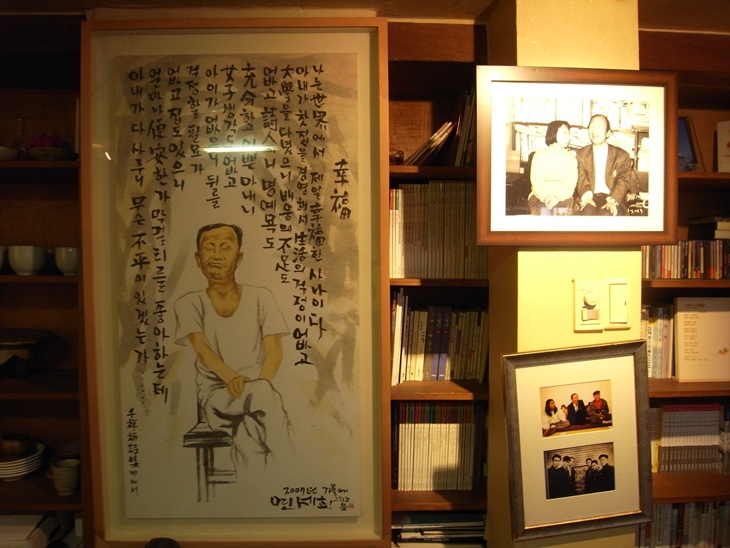 幸福
나는 世界에서 제일 幸福한 사나이다
아내가 찻집을 경영해서 生活의 걱정이 없고
大學을 다녔으니 배움의 不足도
없고 詩人이니 명예욕도
充分하고 이쁜 아내니
女子 생각도 없고
아이가 없으니 뒤를
걱정할 필요가
없고 집도 있으니
얼마나 便安한가 막걸리를 좋아하는데
아내가 다 사주니 무슨 不平이 있겠는가....
千祥炳
2007년 가을에